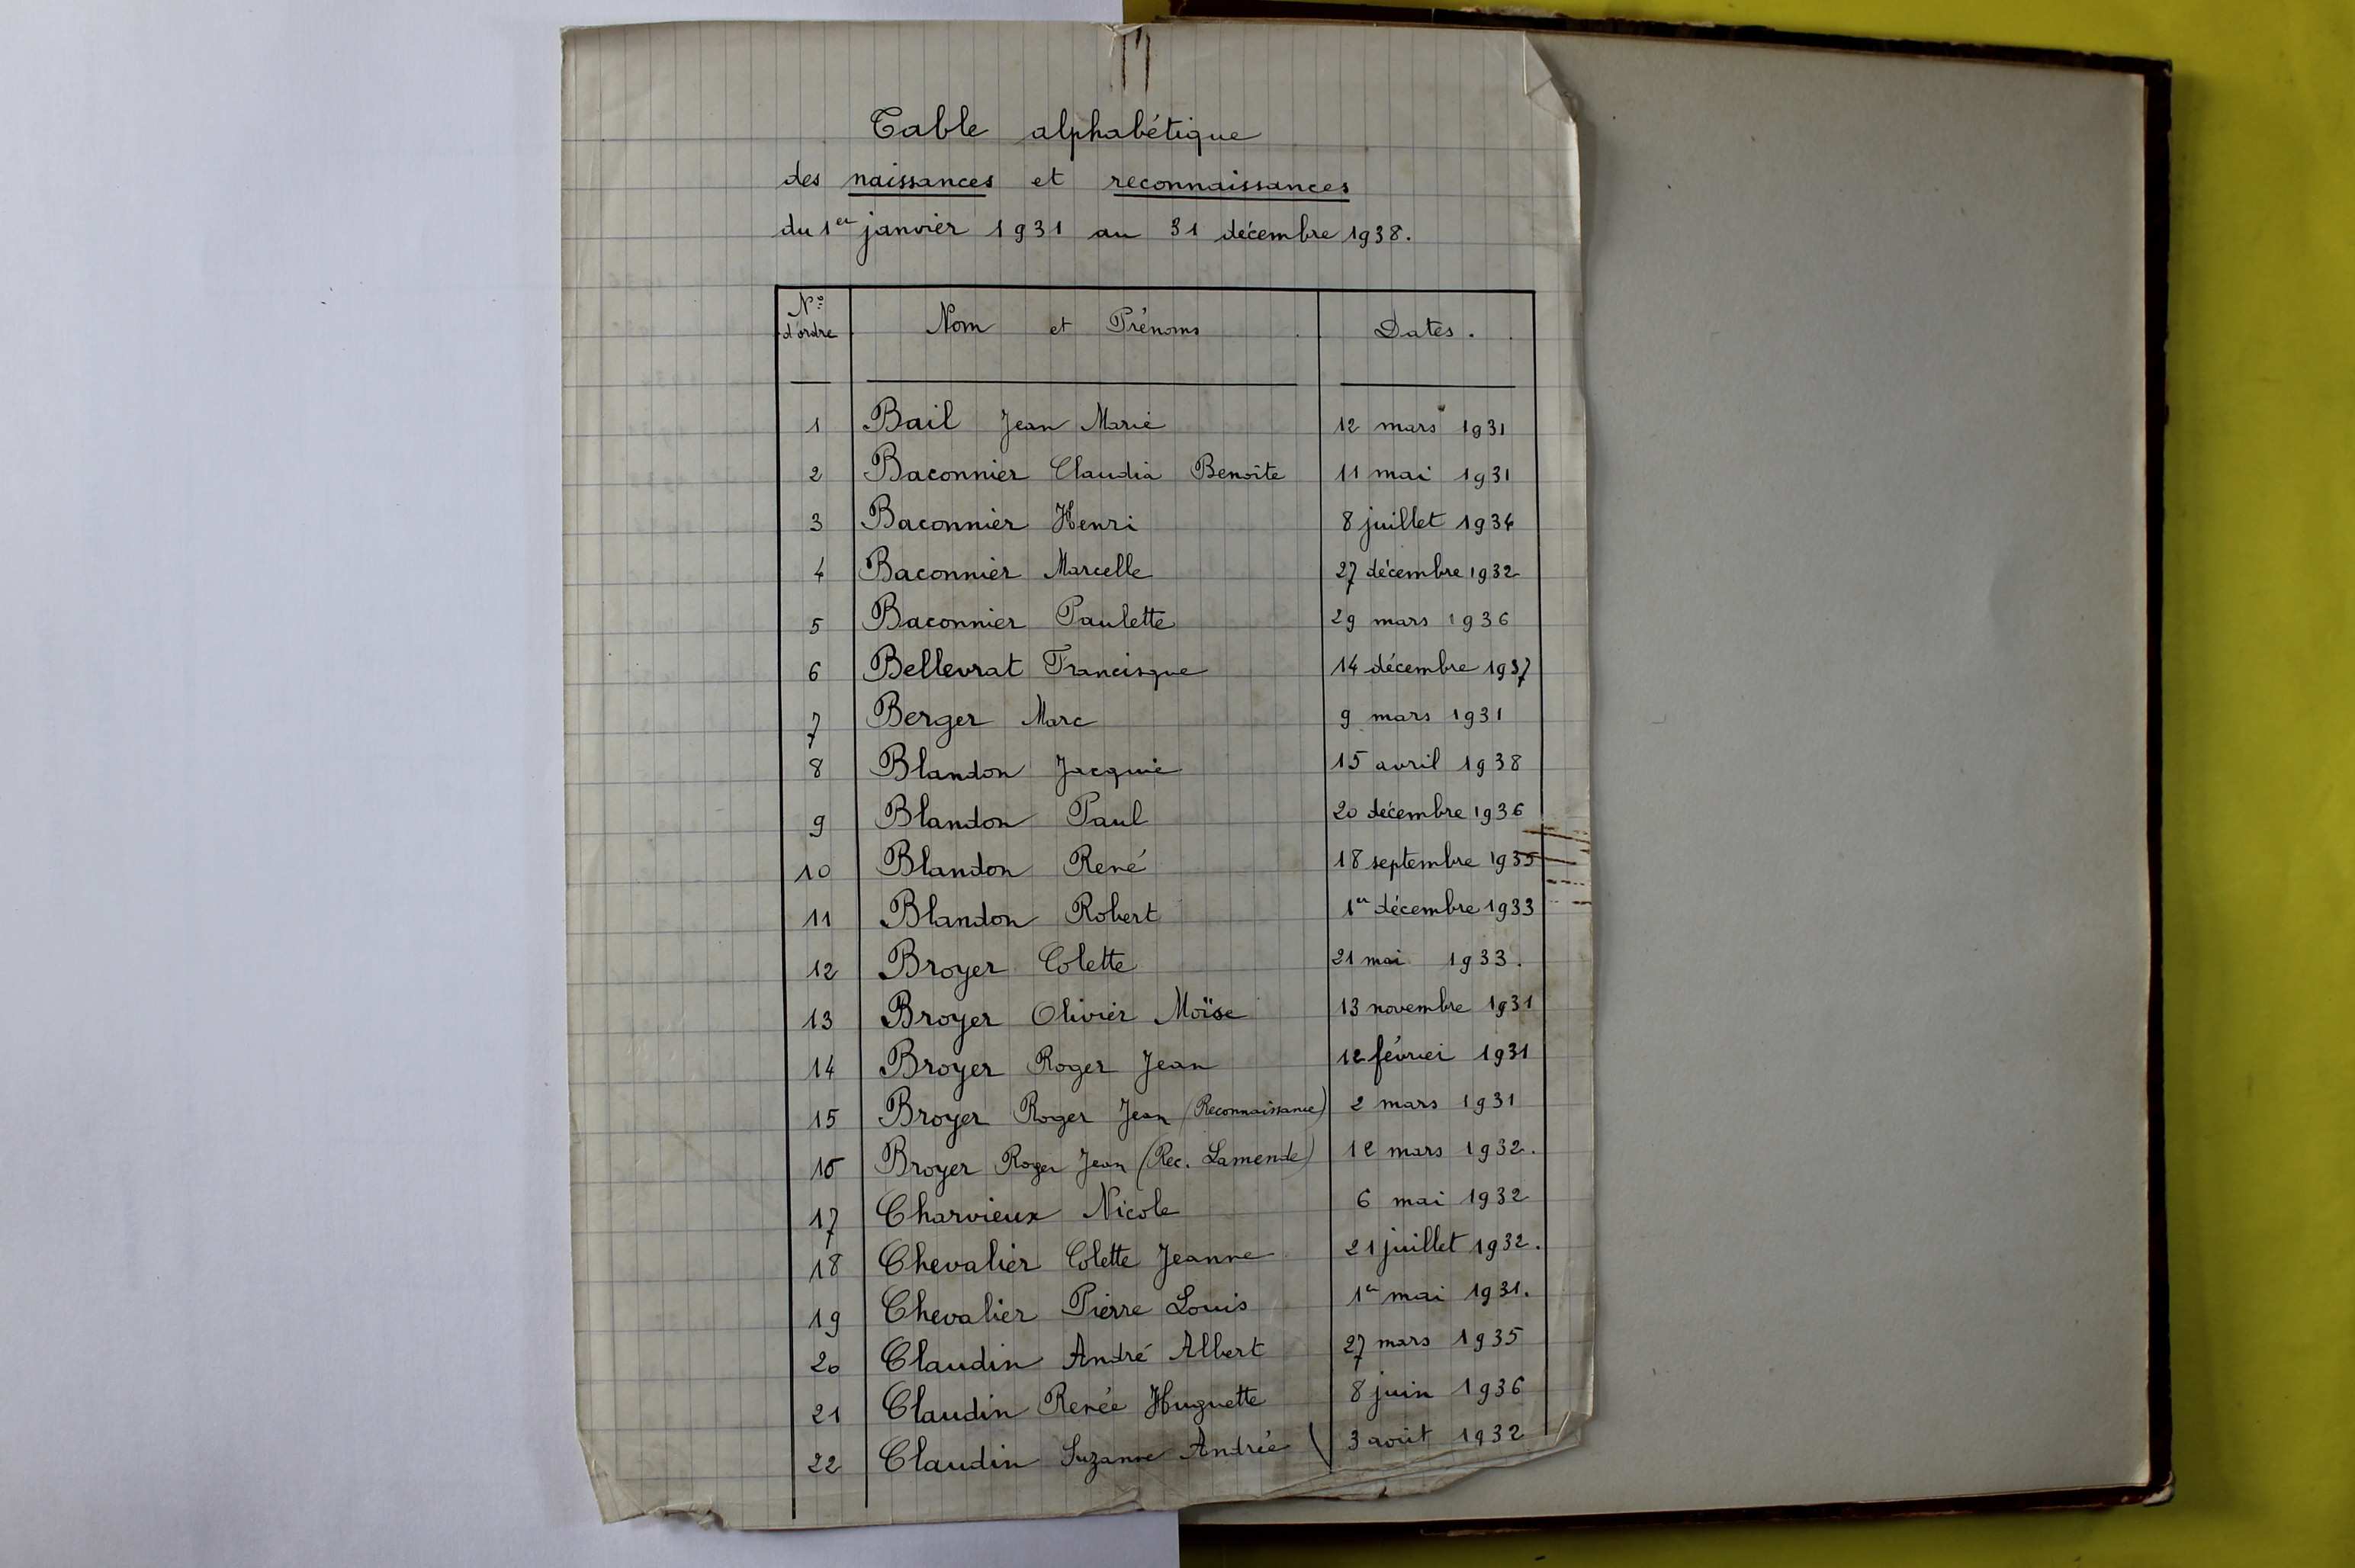 Table alphabétique
des naissances et reconnaissances
du 1er janvier 1931 au 31 décembre 1938.
N° d'ordre Nom et Prénoms Dates.
1 Bail Jean Marie 12 mars 1931
2 Baconnier Claudia Benoîte 11 mai 1931
3 Baconnier Henri 8 juillet 1934
4 Baconnier Marcelle 27 décembre 1932
5 Baconnier Paulette 29 mars 1936
6 Bellevrat Francisque 14 décembre 1937
7 Berger Marc 9 mars 1931
8 Blandon Jacquie 15 avril 1938
9 Blandon Paul 20 décembre 1936
10 Blandon René 18 septembre 1935
11 Blandon Robert 1er décembre 1933
12 Broyer Colette 21 mai 1933.
13 Broyer Olivier Moïse 13 novembre 1931
14 Broyer Roger Jean 12 février 1931
15 Broyer Roger Jean (Reconnaissance) 2 mars 1931
16 Broyer Roger Jean (Rec. Lamende) 12 mars 1932.
17 Charvieux Nicole 6 mai 1932
18 Chevalier Colette Jeanne 21 juillet 1932.
19 Chevalier Pierre Louis 1er mai 1931.
20 Claudin André Albert 27 mars 1935
21 Claudin Renée Huguette 8 juin 1936
22 Claudin Suzanne Andrée 3 août 1932